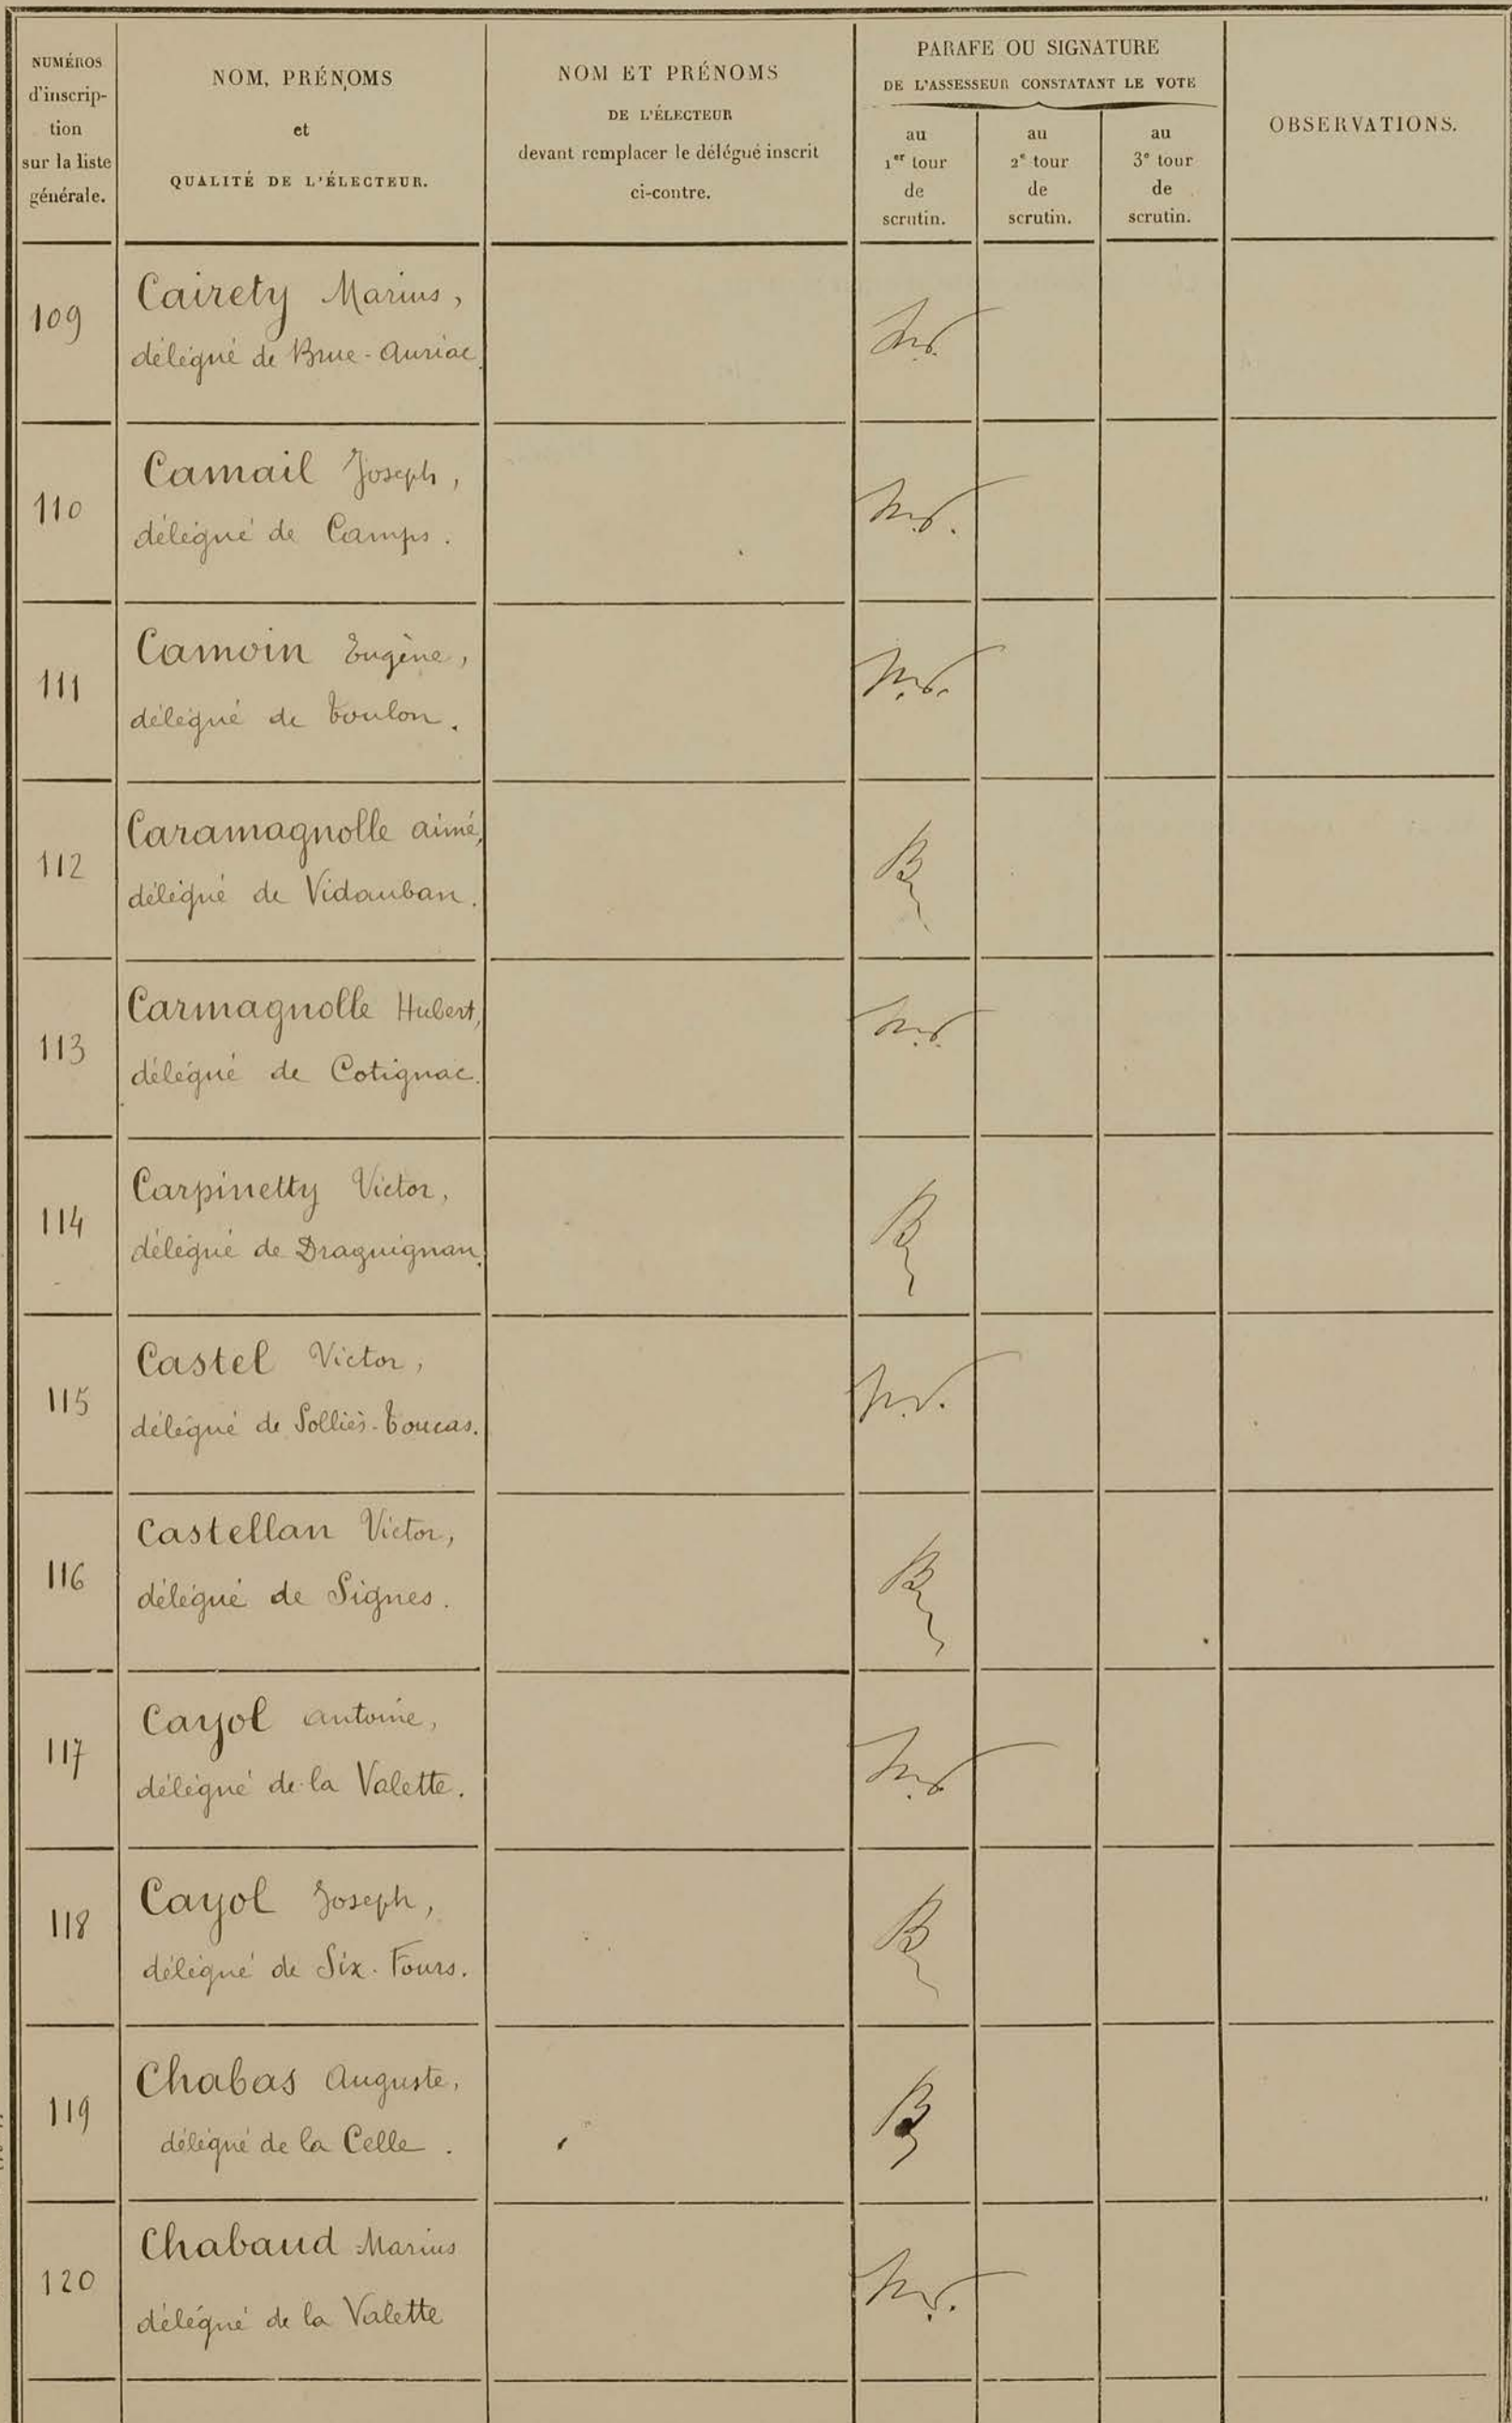 NUMÉROS
d'inscrip-
tion
sur la liste
générale.
NOM, PRÉNOMS
et
QUALITÉ DE L'ÉLECTEUR.
NOM ET PRÉNOMS
DE L'ÉLECTEUR
devant remplacer le délégué inscrit
ci-contre.
PARAFE OU SIGNATURE
DE L'ASSESSEUR CONSTATANT LE VOTE
au
1er tour
de
scrutin.
au
2e tour
de
scrutin.
au
3e tour
de
scrutin.
OBSERVATIONS.
109
Cairety Marius,
délégué de Brue-Auriac
110
Camail Joseph,
délégué de Camps.
111
Camoin Eugène,
délégué de Toulon.
112
Caramagnolle aimé,
délégué de Vidauban.
113
Carmagnolle Hubert,
délégué de Cotignac.
114
Carpinetty Victor,
délégué de Draguignan.
115
Castel Victor,
délégué de Solliès-Toucas.
116
Castellan Victor,
délégué de Signes.
117
Cayol antoine,
délégué de la Valette.
118
Cayol Joseph,
délégué de Six-Fours.
119
Chabas Auguste,
délégué de la Celle.
120
Chabaud Marius
délégué de la Valette